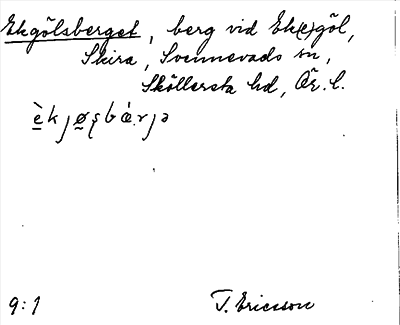 Ekgölsberget, berg vid Ek(e)göl,
Skira, Svennevads sn,
Sköllersta hd, Ör. l.
è̱kȷø̱ʂbæ̀rȷə
9:1 T. Ericsson